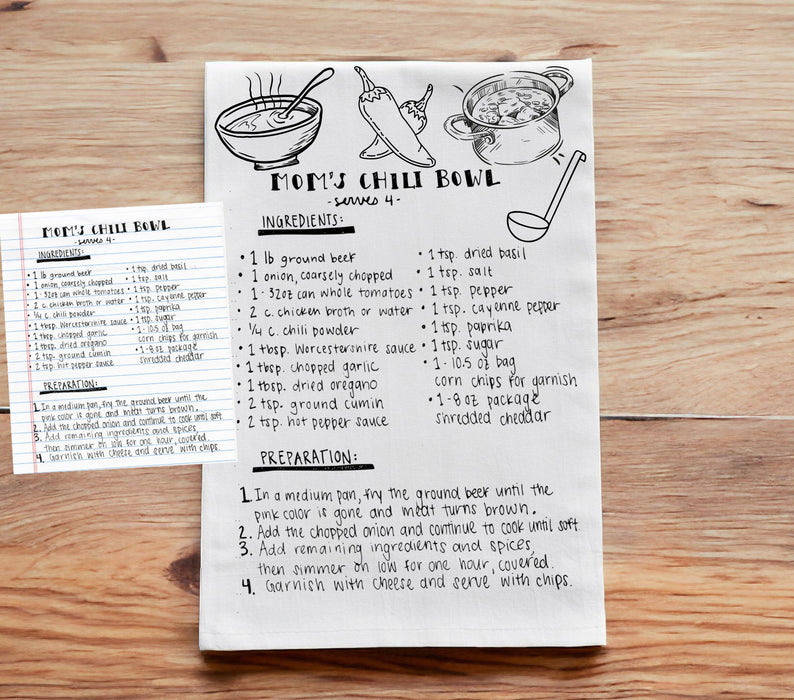 MOM'S CHILI BOWL
-serves 4-
INGREDIENTS:
• 1 lb ground beef
• 1 onion, coarsely chopped
• 1 - 32oz can whole tomatoes
• 2 c. chicken broth or water
• 1/4 c. chili powder
• 1 tbsp. Worcestershire sauce
• 1 tbsp. chopped garlic
• 1 tbsp. dried oregano
• 2 tsp. ground cumin
• 2 tsp. hot pepper sauce
• 1 tsp. dried basil
• 1 tsp. salt
• 1 tsp. pepper
• 1 tsp. cayenne pepper
• 1 tsp. paprika
• 1 tsp. sugar
• 1 - 10.5 oz bag
corn chips for garnish
• 1 - 8 oz package
shredded cheddar
PREPARATION:
1. In a medium pan, fry the ground beef until the
pink color is gone and meat turns brown.
2. Add the chopped onion and continue to cook until soft
3. Add remaining ingredients and spices
then simmer on low for one hour, covered.
4. Garnish with cheese and serve with chips.
MOM'S CHILI BOWL
-serves 4-
INGREDIENTS:
• 1 lb ground beef
• 1 onion, coarsely chopped
• 1 - 32oz can whole tomatoes
• 2 c. chicken broth or water
• 1/4 c. chili powder
• 1 tbsp. Worcestershire sauce
• 1 tbsp. chopped garlic
• 1 tbsp. dried oregano
• 2 tsp. ground cumin
• 2 tsp. hot pepper sauce
• 1 tsp. dried basil
• 1 tsp. salt
• 1 tsp. pepper
• 1 tsp. cayenne pepper
• 1 tsp. paprika
• 1 tsp. sugar
• 1 - 10.5 oz bag
corn chips for garnish
• 1 - 8 oz package
shredded cheddar
PREPARATION:
1. In a medium pan, fry the ground beef until the
pink color is gone and meat turns brown.
2. Add the chopped onion and continue to cook until soft
3. Add remaining ingredients and spices,
then simmer on low for one hour, covered.
4. Garnish with cheese and serve with chips.